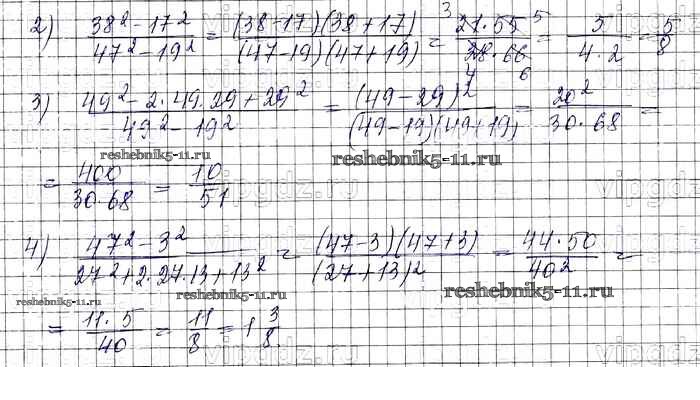 2) (38² - 17²)/(47² - 19²) = ((38-17)(38+17))/((47-19)(47+19)) = (21·55)/(28·66) = 5/(4·2) = 5/8
3) (49² - 2·49·29 + 29²)/(49² - 19²) = (49-29)²/((49-19)(49+19)) = 20²/(30·68) =
reshebnik5-11.ru reshebnik5-11.ru
= 400/(30·68) = 10/51
4) (47² - 3²)/(27² + 2·27·13 + 13²) = ((47-3)(47+3))/(27+13)² = (44·50)/40² =
reshebnik5-11.ru reshebnik5-11.ru reshebnik5-11.ru
= (11·5)/40 = 11/8 = 1 3/8.